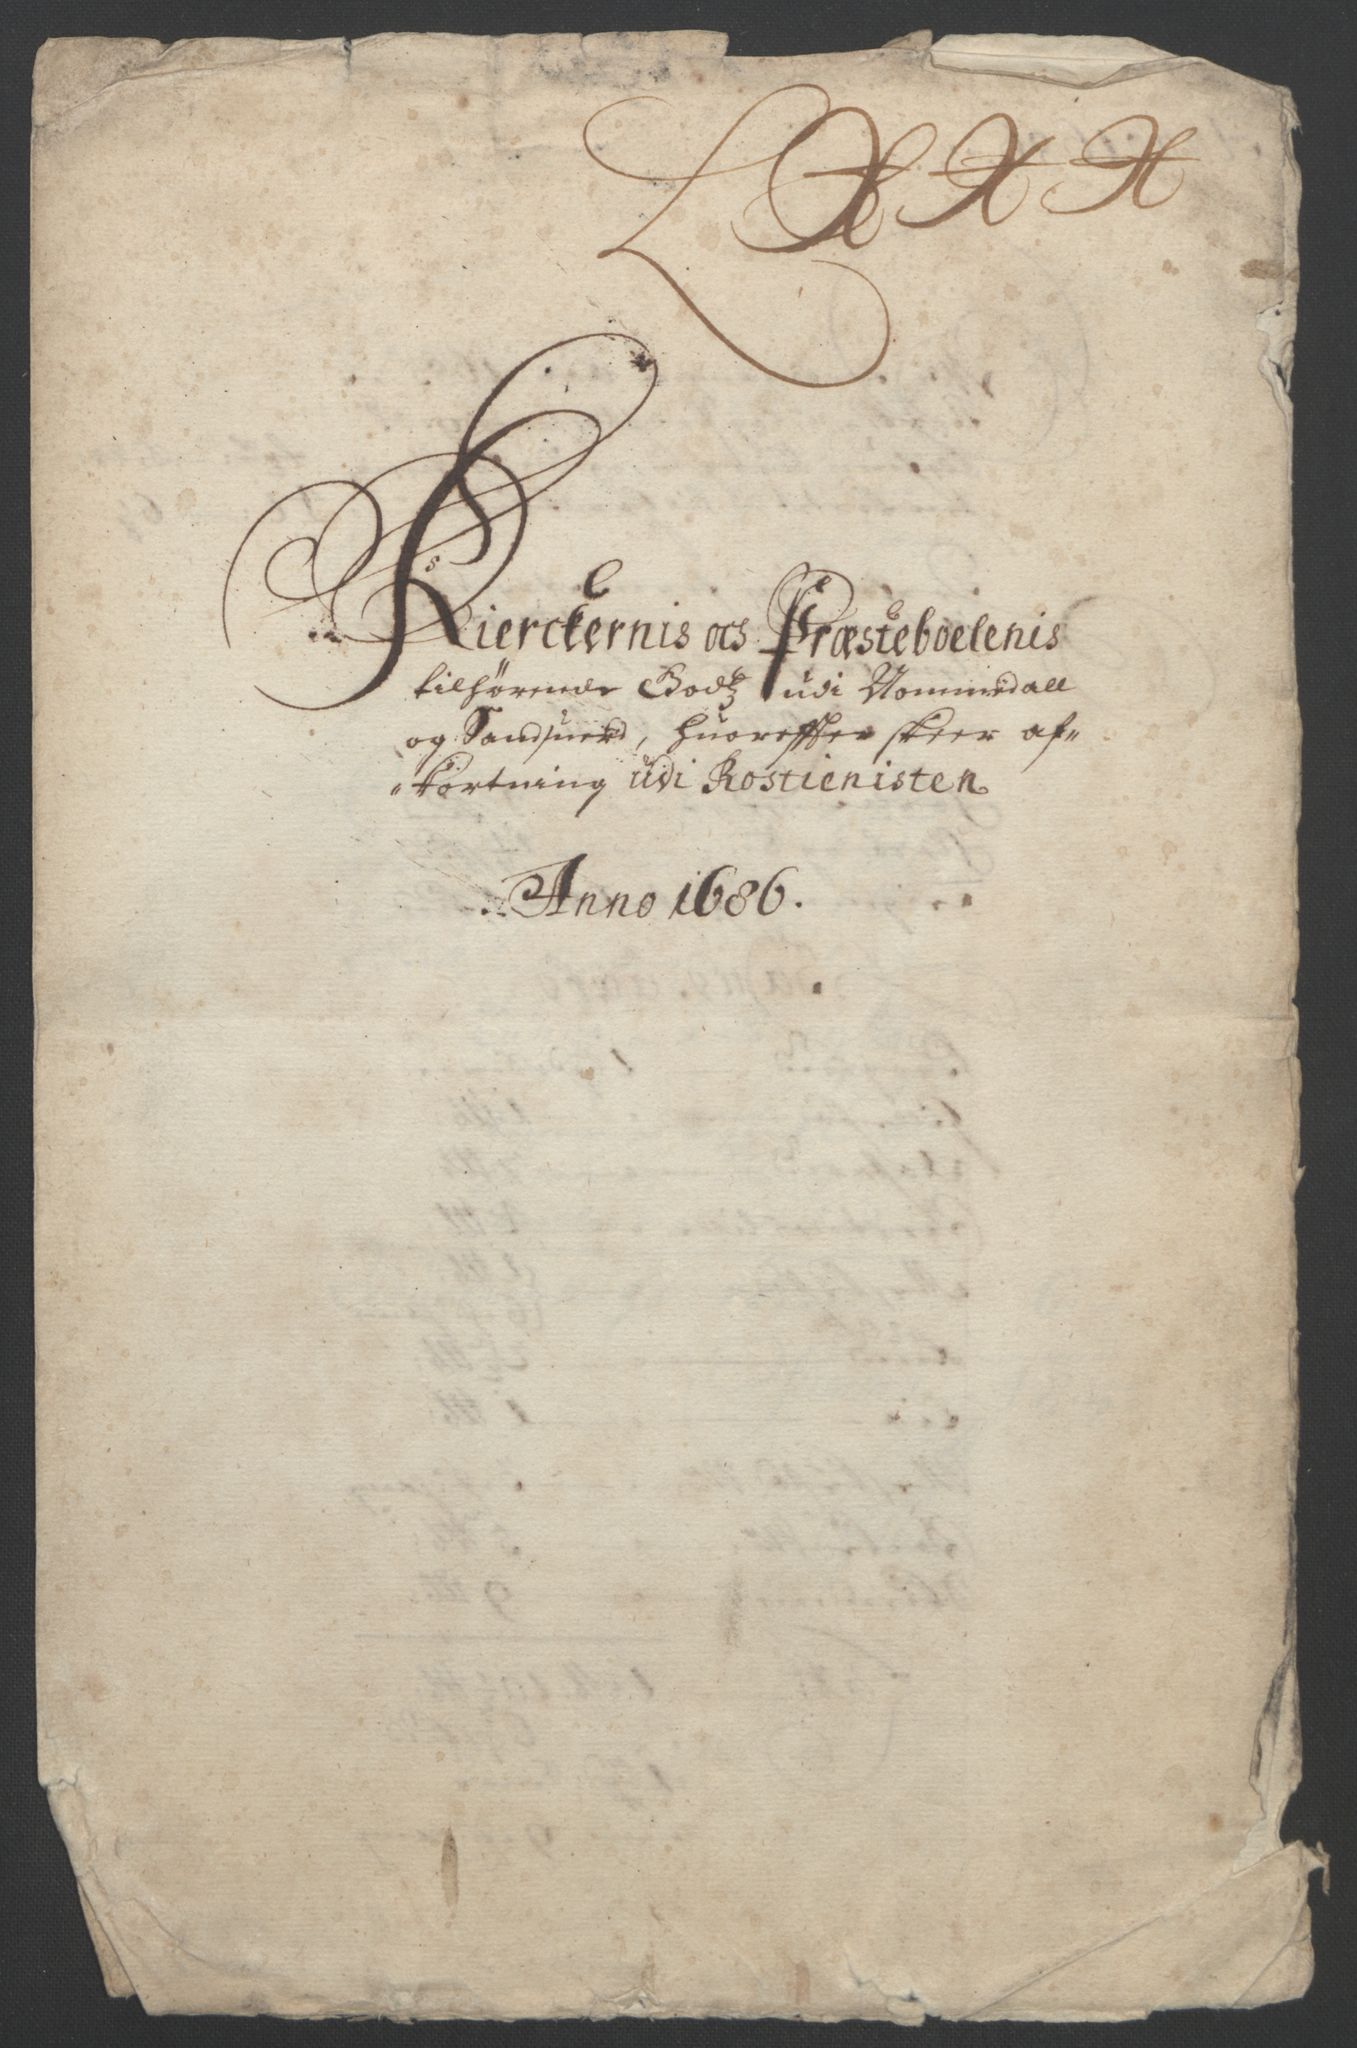 LXXX
Kierckernis ocs Præsteboelenis
tilhørende Godtz udi Nommedall
og Sandsuerd, huoreffter skeer af-
kortning udi Rostienisten
Anno 1686.